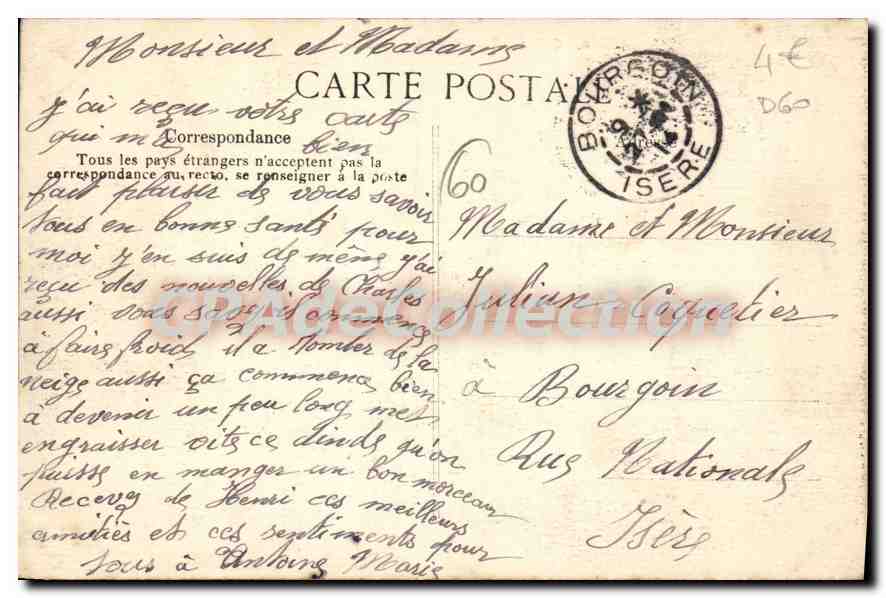 Monsieur et Madame
CARTE POSTALE
j'ai reçu votre carte
qui m'a bien
Correspondance
Tous les pays étrangers n'acceptent pas la
correspondance au recto, se renseigner à la poste
fait plaisir de vous savoir
tous en bonne santé pour
moi j'en suis de même j'ai
reçu des nouvelles de Charles
aussi vous savez il commence
à faire froid il a tomber de la
neige aussi ça commence bien
à devenir un peu long
engraisser vite ce dinde qu'on
puisse en manger un bon morceau
Recevez de Henri ces meilleurs
amitiés et ces sentiments pour
tous à Antoine Marie
BOURGOIN
ISÈRE
4€
D60
60
Madame et Monsieur
Julian Coquetier
à Bourgoin
Rue Nationale
Isère
CPADeCollection